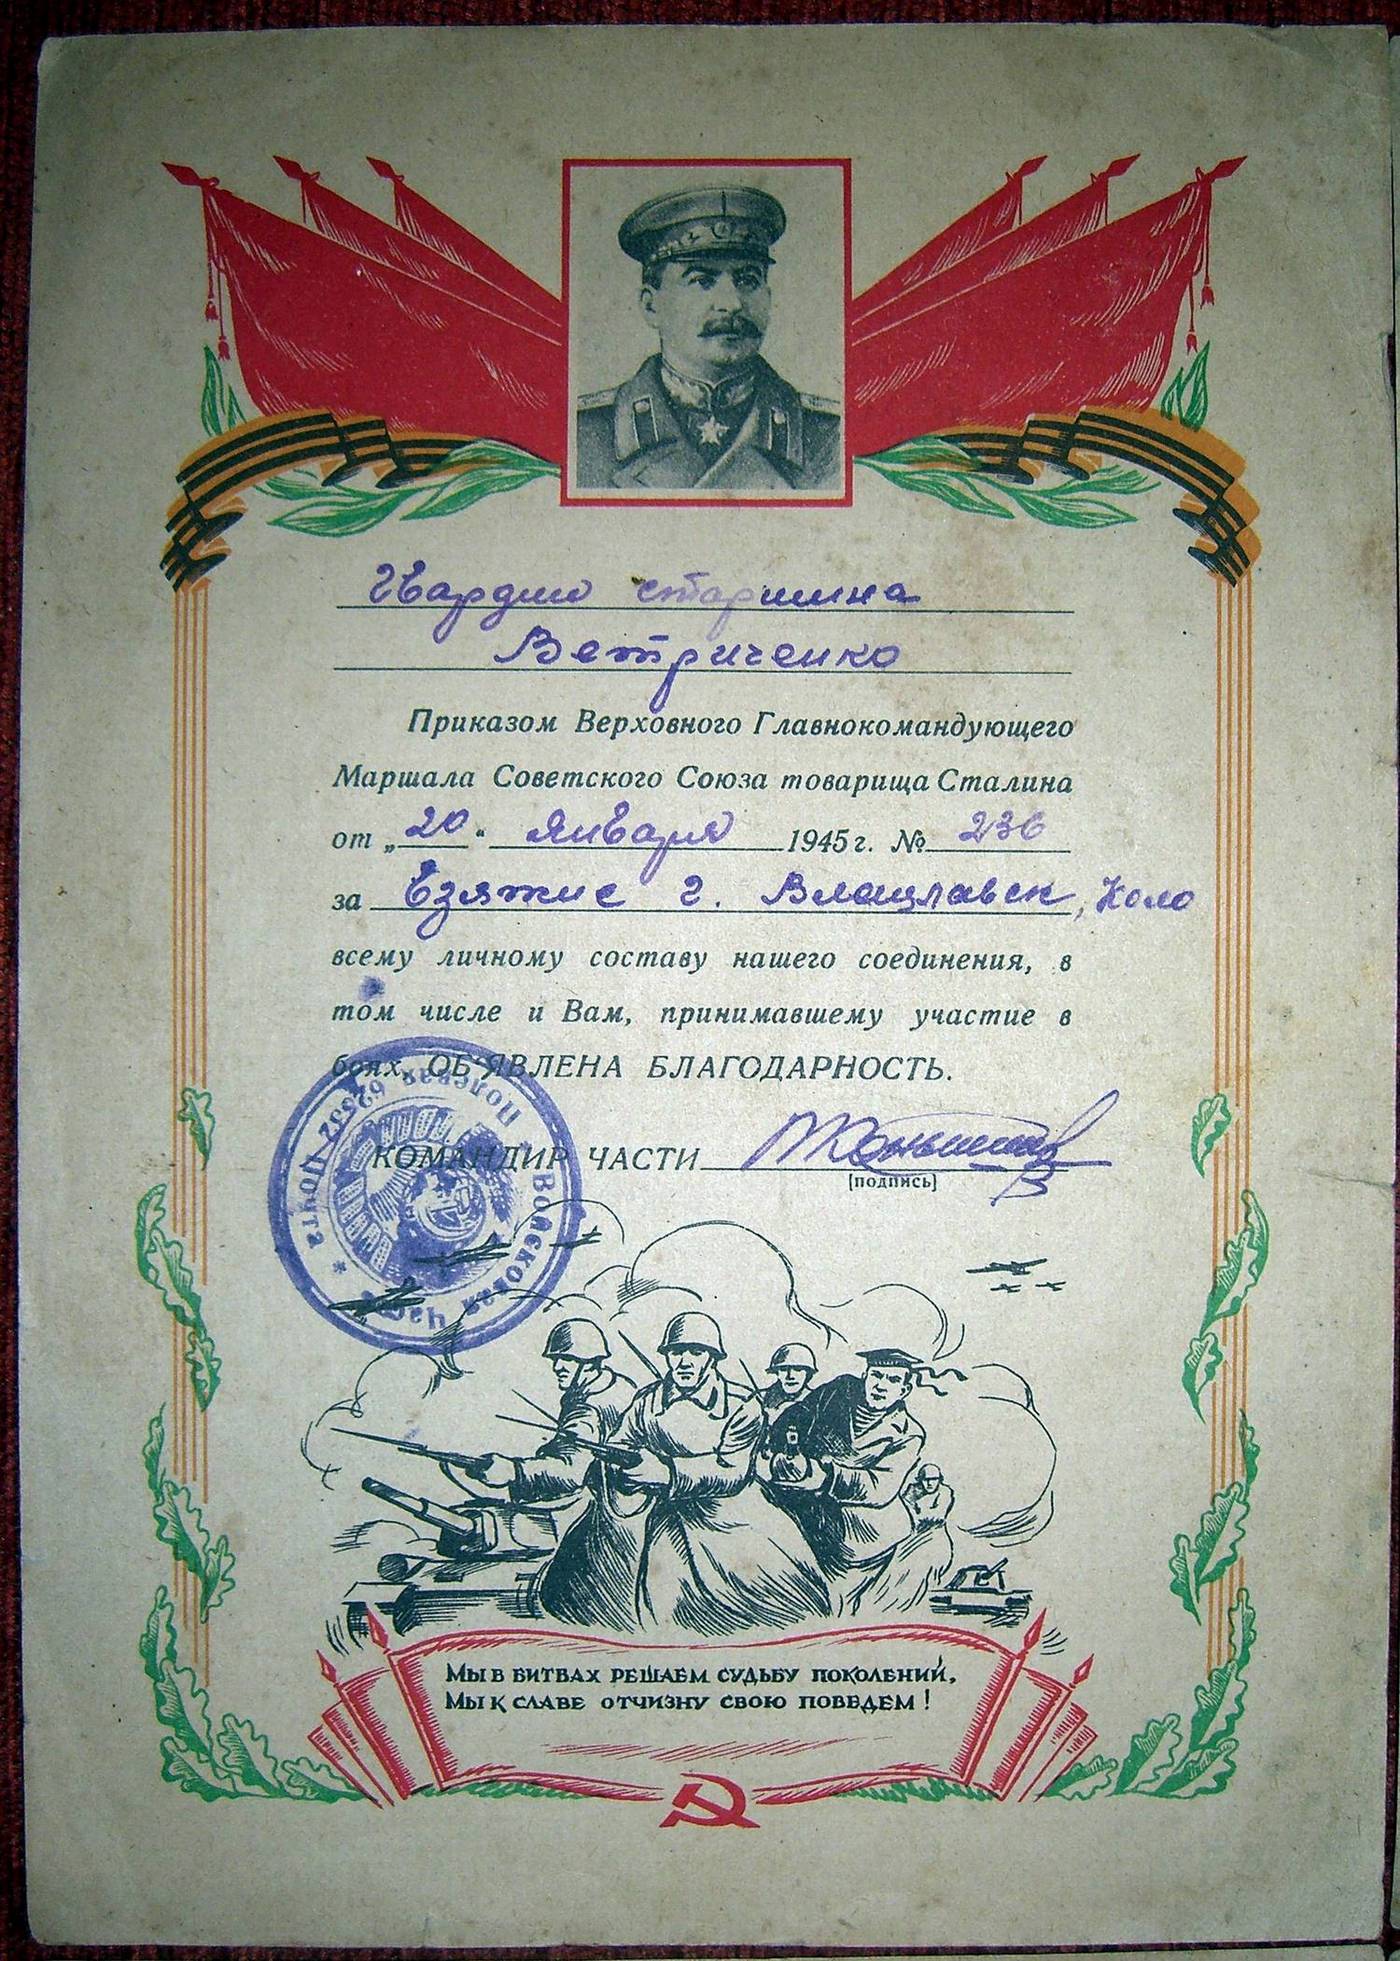 Гвардии старшина
Ветриченко
Приказом Верховного Главнокомандующего
Маршала Советского Союза товарища Сталина
от „20“ Января 1945 г. № 236
за взятие г. Влацлавск, Коло
всему личному составу нашего соединения, в
том числе и Вам, принимавшему участие в
боях, ОБ'ЯВЛЕНА БЛАГОДАРНОСТЬ.
КОМАНДИР ЧАСТИ
(подпись)
* Войсковая Часть * Полевая Почта 62532
МЫ В БИТВАХ РЕШАЕМ СУДЬБУ ПОКОЛЕНИЙ,
МЫ К СЛАВЕ ОТЧИЗНУ СВОЮ ПОВЕДЕМ!